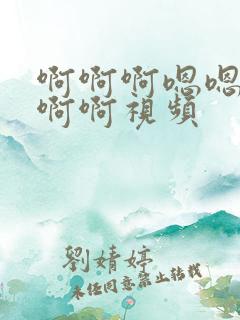 啊啊啊嗯嗯
啊啊視頻
劉婧婷
未经同意禁止转载